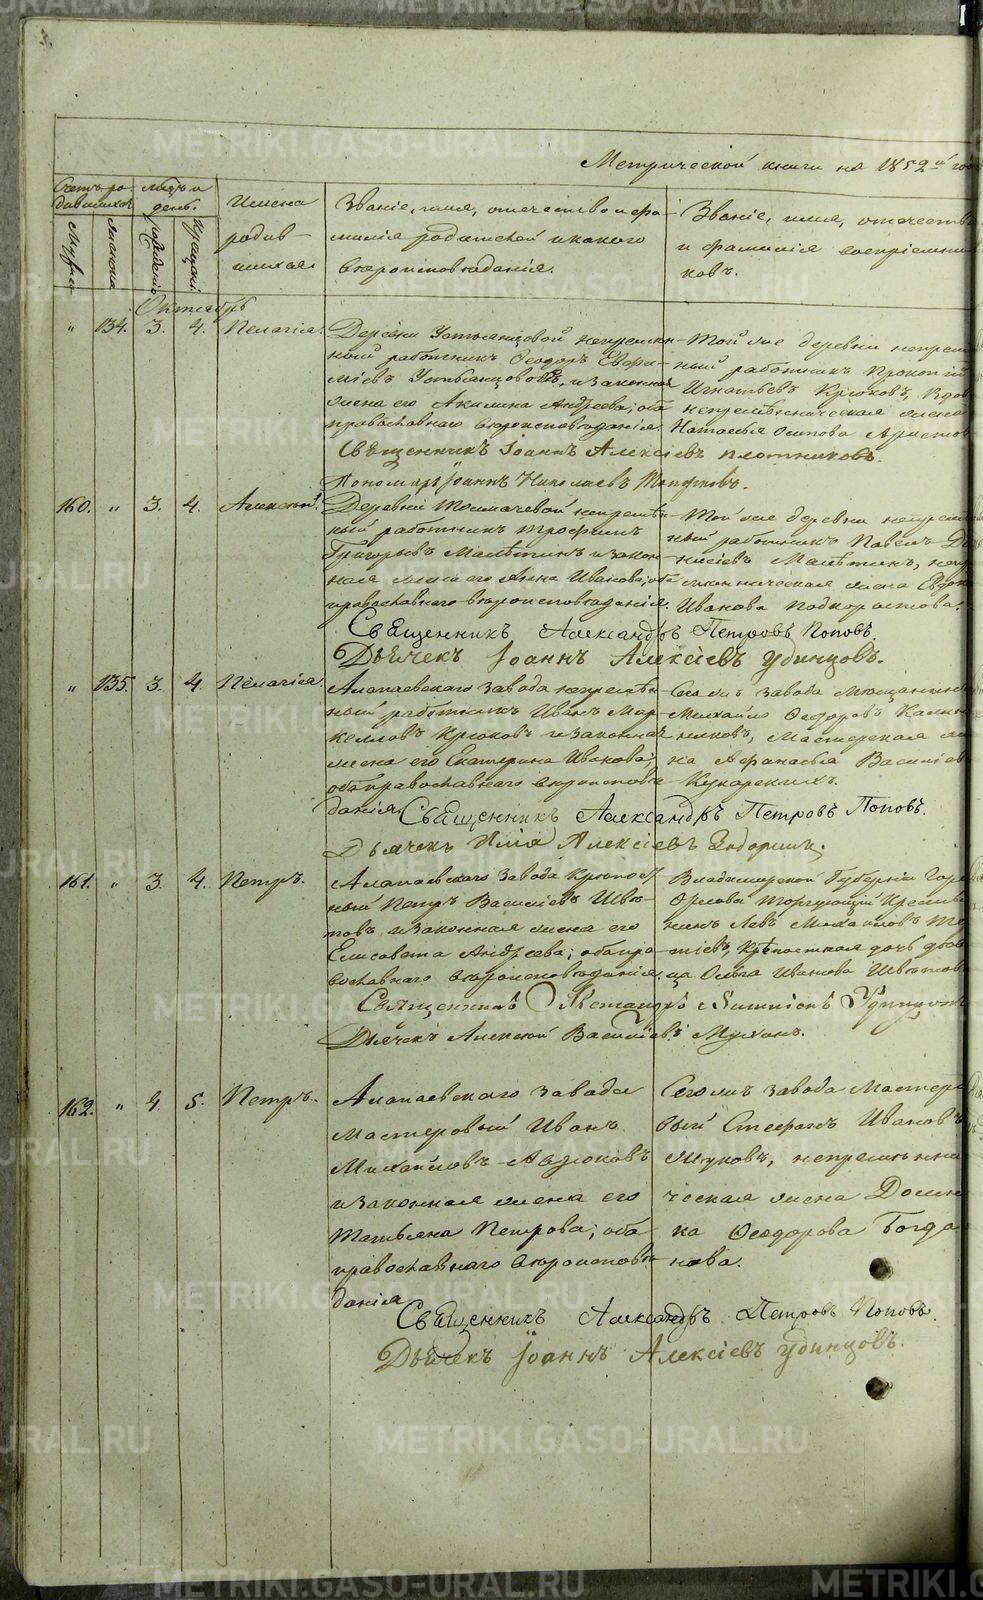 Метрической книги на 1852й годъ
Счетъ ро-
дившихся
Мѣсяцъ и
день
Мужеска
Женска
рожденія
крещенія
Имена
родив-
шихся.
Званіе, имя, отечество и фа-
милія родителей и какого
вѣроисповѣданія.
Званіе, имя, отечество
и фамилія воспріемни
ковъ.
Октябрь
" 134. 3. 4. Пелагія.
Деревни Устьянцовой непремѣн-
ный работникъ Ѳеодоръ Евфи-
міевъ Устьянцовъ, и законная
жена его Акилина Андреева; оба
православнаго вѣроисповѣданія.
Той же деревни непремѣн
ный работникъ Прокопій
Игнатьевъ Крюковъ, Вдов
непремѣнническая жена
Наталья Осипова Аристов
Священникъ Іоаннъ Алексіевъ Плотниковъ.
Пономарь Іоаннъ Николаевъ
160. " 3. 4. Алексѣй.
Деревни Толмачевой непремѣн-
ный работникъ Трофимъ
Григорьевъ Малѣтинъ и закон-
ная жена его Анна Иванова; оба
православнаго вѣроисповѣданія.
Той же деревни непремѣн
ный работникъ Павелъ Ді
нисіевъ Малѣтинъ, непре
мѣнническая жена Евдок
Иванова Подкорытова.
Священникъ Александръ Петровъ Поповъ.
Дьячекъ Іоаннъ Алексіевъ Удинцовъ.
" 135. 3. 4. Пелагія.
Алапаевскаго завода непремѣн-
ный работникъ Иванъ Мар-
келловъ Крюковъ и законная
жена его Екатерина Иванова;
оба православнаго вѣроисповѣ-
данія.
Сего жъ завода Мѣщанинъ
Михайло Ѳедоровъ Калин
никовъ, Мастерская же
на Афанасья Василіев
Кукарскихъ.
Священникъ Александръ Петровъ Поповъ.
Дьячекъ Илія Алексіевъ
161. " 3. 4. Петръ.
Алапаевскаго завода крѣпост
ный Петръ Василіевъ Швѣ-
товъ и законная жена его
Елисавета Андреева; оба пра-
вославнаго вѣроисповѣданія.
Владимирской Губерніи Гор
Торгующій крестья
нинъ Левъ Михайловъ Ме
тіевъ, крѣпостная дочь дѣви
ца Ольга Иванова Швѣтов
Священникъ Александръ Удинцовъ
Дьячекъ Алексѣй Василіевъ Мухинъ.
162. " 4. 5. Петръ.
Алапаевскаго завода
Мастеровый Иванъ
Михайловъ Авдюковъ
и законная жена его
Татьяна Петрова; оба
православнаго вѣроисповѣ-
данія
Сего жъ завода Мастеро
вый Стефанъ Ивановъ
Жуковъ, непремѣнни
ческая жена Домни
ка Ѳеодорова Богда
нова.
Священникъ Александръ Петровъ Поповъ.
Дьячекъ Іоаннъ Алексіевъ Удинцовъ.
METRIKI.GASO-URAL.RU